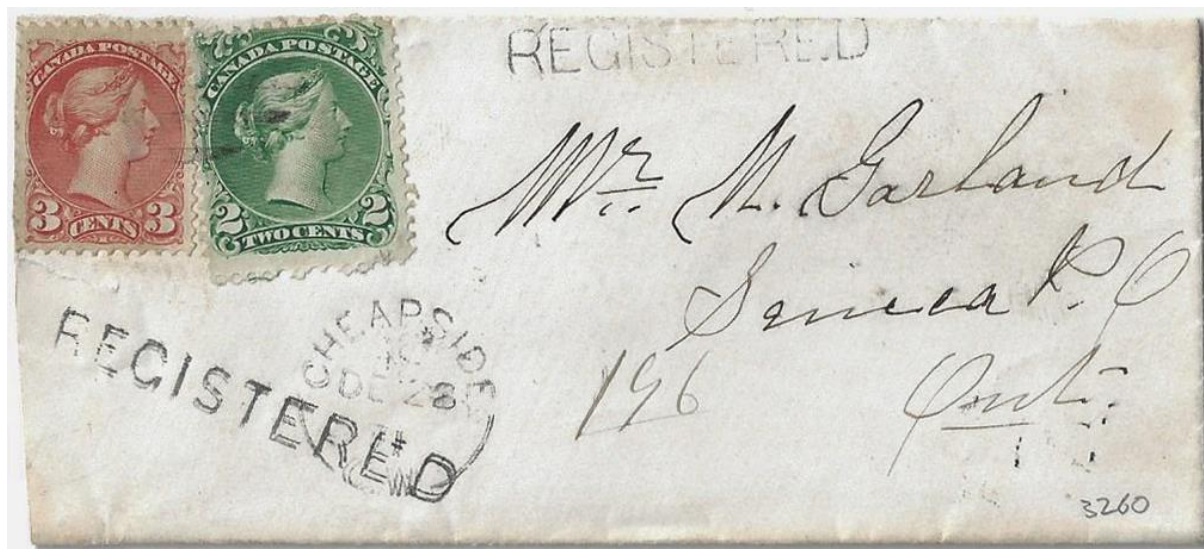 CANADA POSTAGE
3 CENTS 3
CANADA POSTAGE
2 TWO CENTS 2
REGISTERED
Mr. M. Garland
Seneca P. O
Ont.
196
CHEAPSIDE
DE 28
REGISTERED
3260